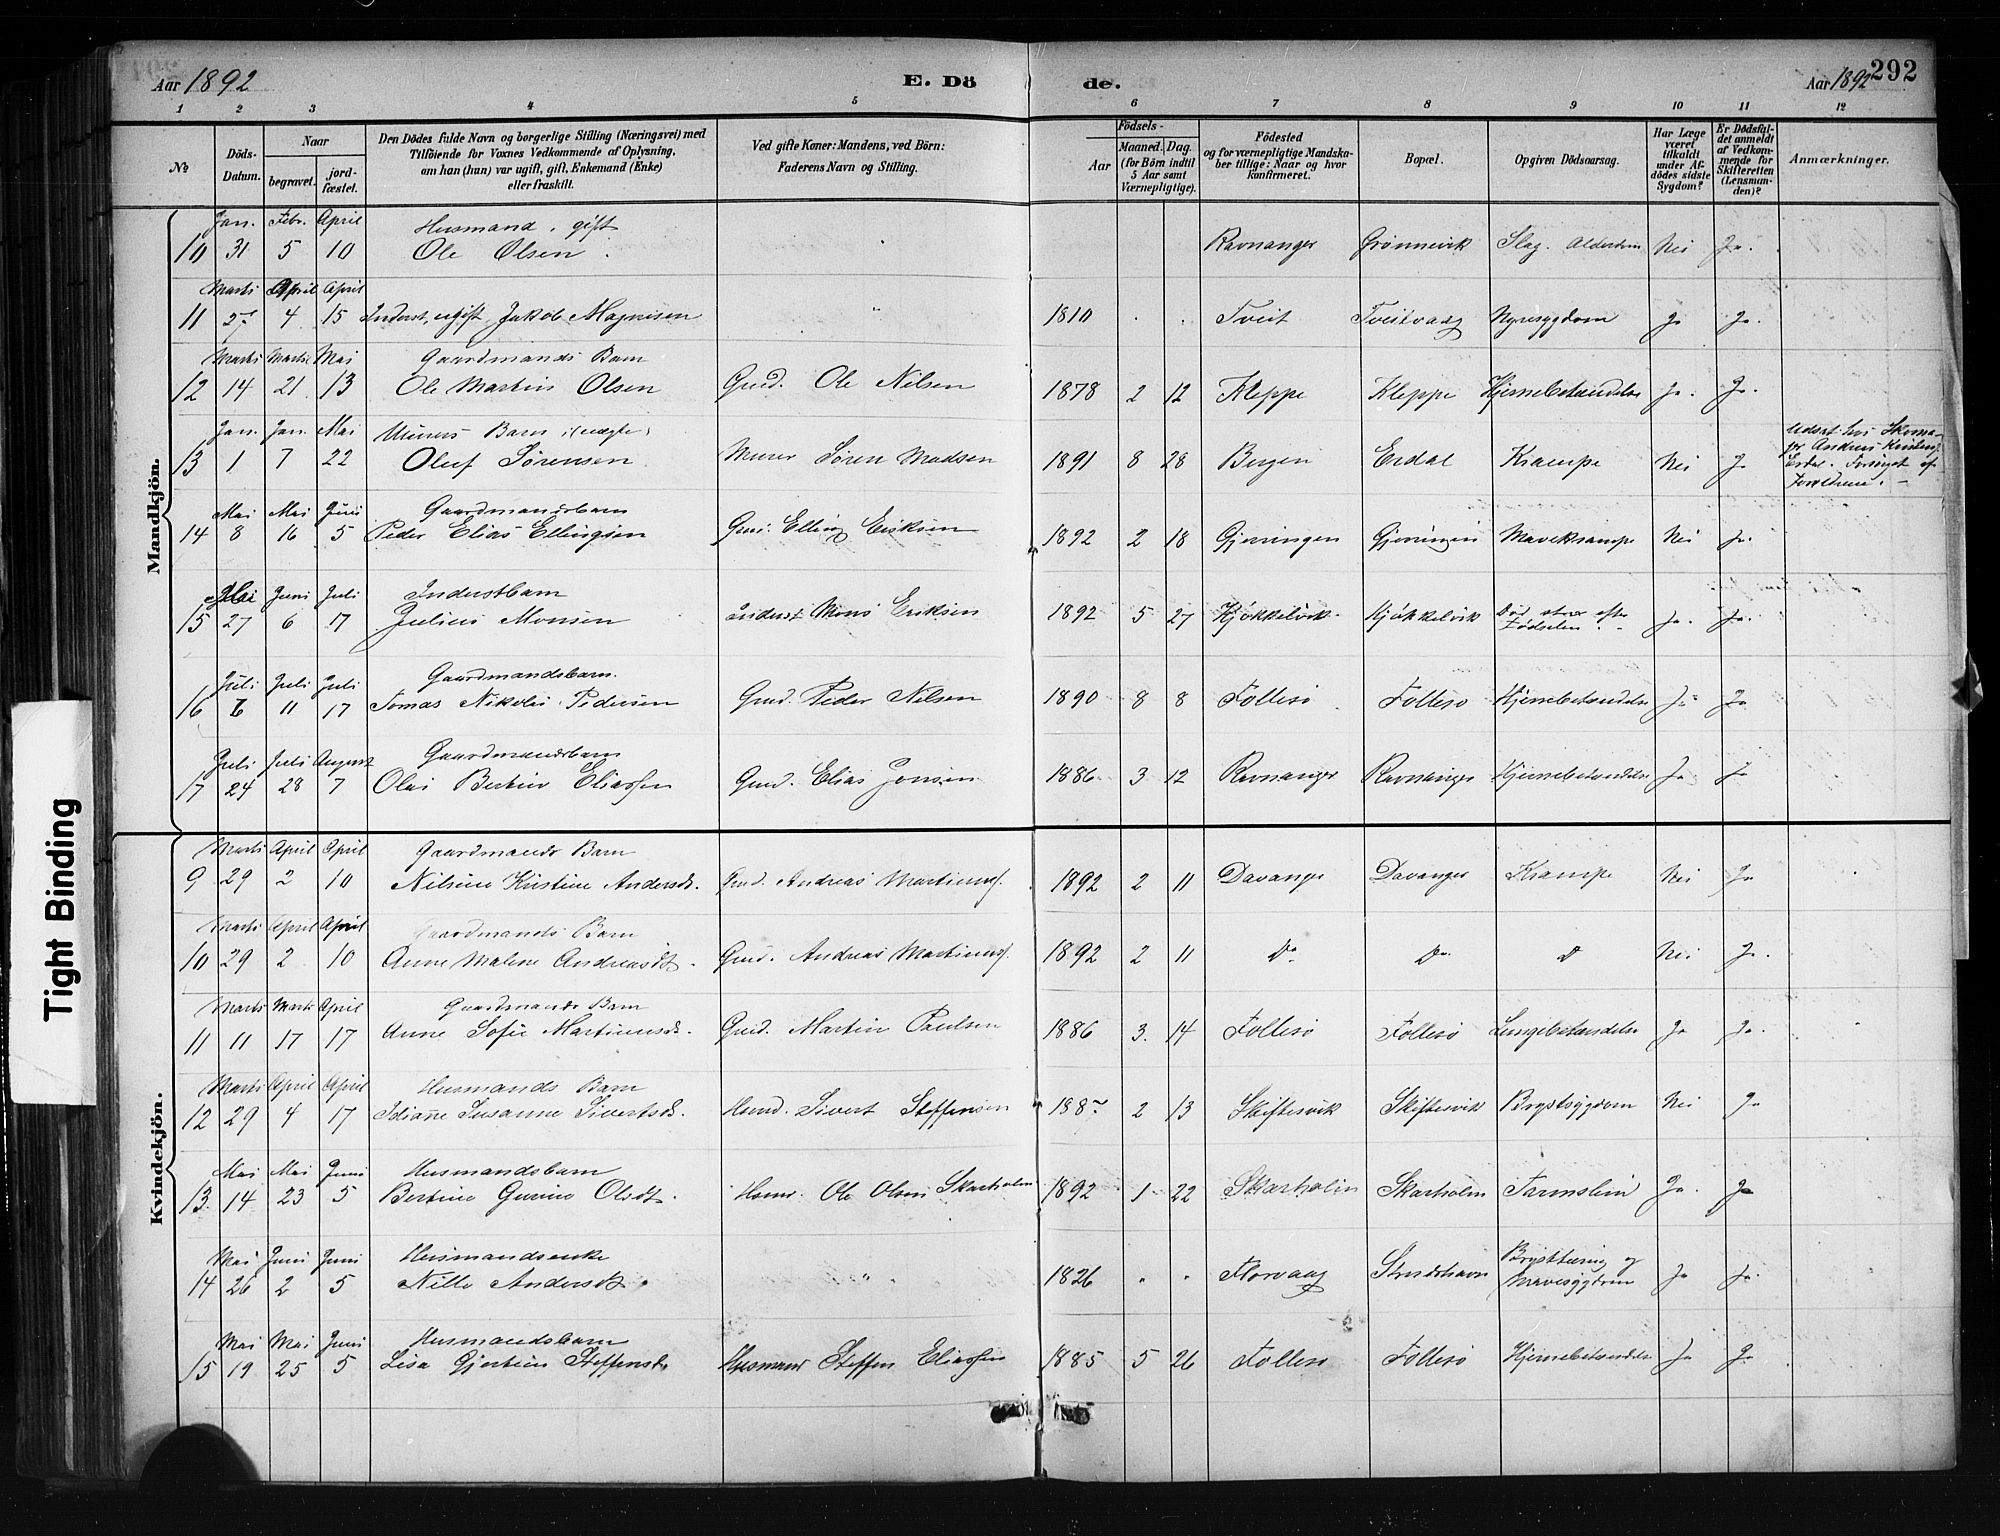 Aar 1892 E. Dö de. Aar 1892 292
1 2 3 4 5 6 7 8 9 10 11 12
No Döds-Datum. Naar begravet. jordfæstet. Den Dödes fulde Navn og borgerlige Stilling (Næringsvei) med Tilföiende for Voxnes Vedkommende af Oplysning, om han (hun) var ugift, gift, Enkemand (Enke) eller fraskilt. Ved gifte Koner: Mandens, ved Börn: Faderens Navn og Stilling. Födsels- Aar Maaned. Dag. (for Börn indtil 5 Aar samt Værnepligtige). Födested og for værnepligtige Mandskaber tillige: Naar og hvor konfirmeret. Bopæl. Opgiven Dödsaarsag. Har Læge været tilkaldt under Afdödes sidste Sygdom? Er Dödsfaldet anmeldt af Vedkommende for Skifteretten (Lensmanden)? Anmærkninger.
Mandkjön.
Jan. Febr. April Husmand, gift
10 31 5 10 Ole Olsen. Ravnanger Grønnevik Slag. Alderdom Nei Ja.
Marts April April
11 27 4 15 Inderst, ugift Jakob Magnisen 1810 Tveit Tveitvaag Nyresygdom Ja Ja.
Marts Marts Mai Gaardmands Barn
12 14 21 13 Ole Martin Olsen Gmd. Ole Nilsen 1878 2 12 Kleppe Kleppe Hjernebetændelse Ja. Ja.
Jan. Jan. Mai Murers Barn (uægte)
13 1 7 22 Oluf Sørensen Murer Søren Madsen 1891 8 28 Bergen Erdal Krampe Nei Ja Udsat hos Skoma-
Erdal. Forsørget af
Forældrene.
Mai Mai Juni Gaardmandsbarn
14 8 16 5 Peder Elias Ellingsen Gmd. Elling Eriksen 1892 2 18 Gjerningen Gjerningen Mavekrampe Nei Ja.
Mai Juni Juli Inderstbarn
15 27 6 17 Julius Monsen Inderst Mons Eriksen 1892 5 27 Kjøkkelvik Kjøkkelvik Død strax efter Fødselen. Ja. Ja.
Juli Juli Juli Gaardmandsbarn.
16 6 11 17 Tomas Nikolai Pedersen Gmd. Peder Nilsen 1890 8 8 Follesø Follesø Hjernebetændelse Ja Ja
Juli Juli August Gaardmandsbarn
17 24 28 7 Olai Bertin Eliassen Gmd. Elias Jonsen 1886 3 12 Ravnanger Ravnanger Hjernebetændelse Ja. Ja
Kvindekjön.
Marts April April Gaardmands Barn
9 29 2 10 Nilsine Kristine Andersdt. Gmd. Andreas Martinus. 1892 2 11 Davanger Davanger Krampe Nei Ja
Marts April April Gaardmands Barn
10 29 2 10 Anne Malene Andreasdt. Gmd. Andreas Martinus. 1892 2 11 Do. Do. Do Nei Ja.
Marts Marts April Gaardmands Barn
11 11 17 17 Anne Sofie Martinusdt. Gmd. Martin Paulsen 1886 3. 14 Follesø Follesø Lungebetændelse Ja Ja.
Marts April April Husmands Barn
12 29 4 17 Idianne Susanne Sivertsdt. Hmd. Sivert Steffensen 1887 2 13 Skiftesvik Skiftesvik Brystsygdom Nei Ja
Mai Mai Juni Husmandsbarn
13. 14 23 5 Bertine Gurine Olsdt. Hmd. Ole Olsen Skarholm 1892 1 22 Skarholm Skarholm Tarmslim Ja. Ja
Mai Juni Juni Husmandsenke
14 26 2 5 Nille Andersdt. 1826 Florvaag Strudshavn Brysttæring og Mavesygdom Ja Ja.
Mai Mai Juni Husmandsbarn
15 19 25 5 Lisa Gjertine Steffensdt. Husmand Steffen Eliassen 1885 5 26 Follesø Follesø Hjernebetændelse Ja Ja.
Tight Binding